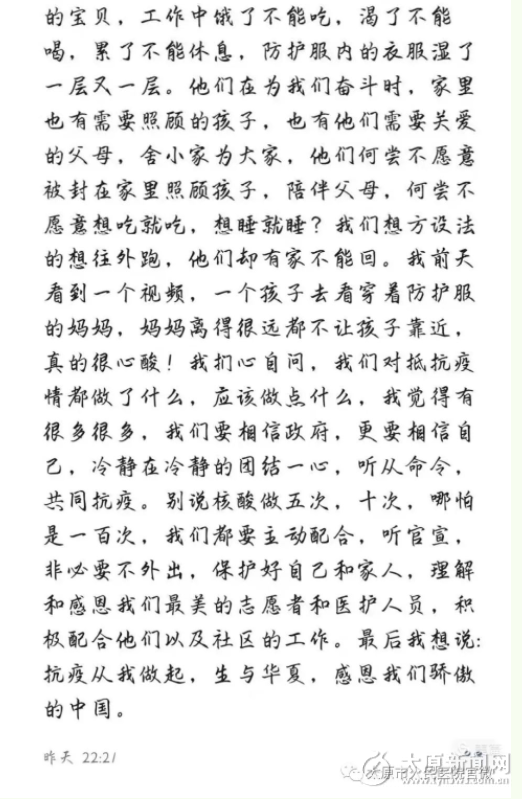 的宝贝，工作中饿了不能吃，渴了不能
喝，累了不能休息，防护服内的衣服湿了
一层又一层。他们在为我们奋斗时，家里
也有需要照顾的孩子，也有他们需要关爱
的父母，舍小家为大家，他们何尝不愿意
被封在家里照顾孩子，陪伴父母，何尝不
愿意想吃就吃，想睡就睡？我们想方设法
的想往外跑，他们却有家不能回。我前天
看到一个视频，一个孩子去看穿着防护服
的妈妈，妈妈离得很远都不让孩子靠近，
真的很心酸！我扪心自问，我们对抵抗疫
情都做了什么，应该做点什么，我觉得有
很多很多，我们要相信政府，更要相信自
己，冷静在冷静的团结一心，听从命令，
共同抗疫。别说核酸做五次，十次，哪怕
是一百次，我们都要主动配合，听官宣，
非必要不外出，保护好自己和家人，理解
和感恩我们最美的志愿者和医护人员，积
极配合他们以及社区的工作。最后我想说:
抗疫从我做起，生与华夏，感恩我们骄傲
的中国。
昨天 22:21
太原新闻网
www.tynews.com.cn
太原市